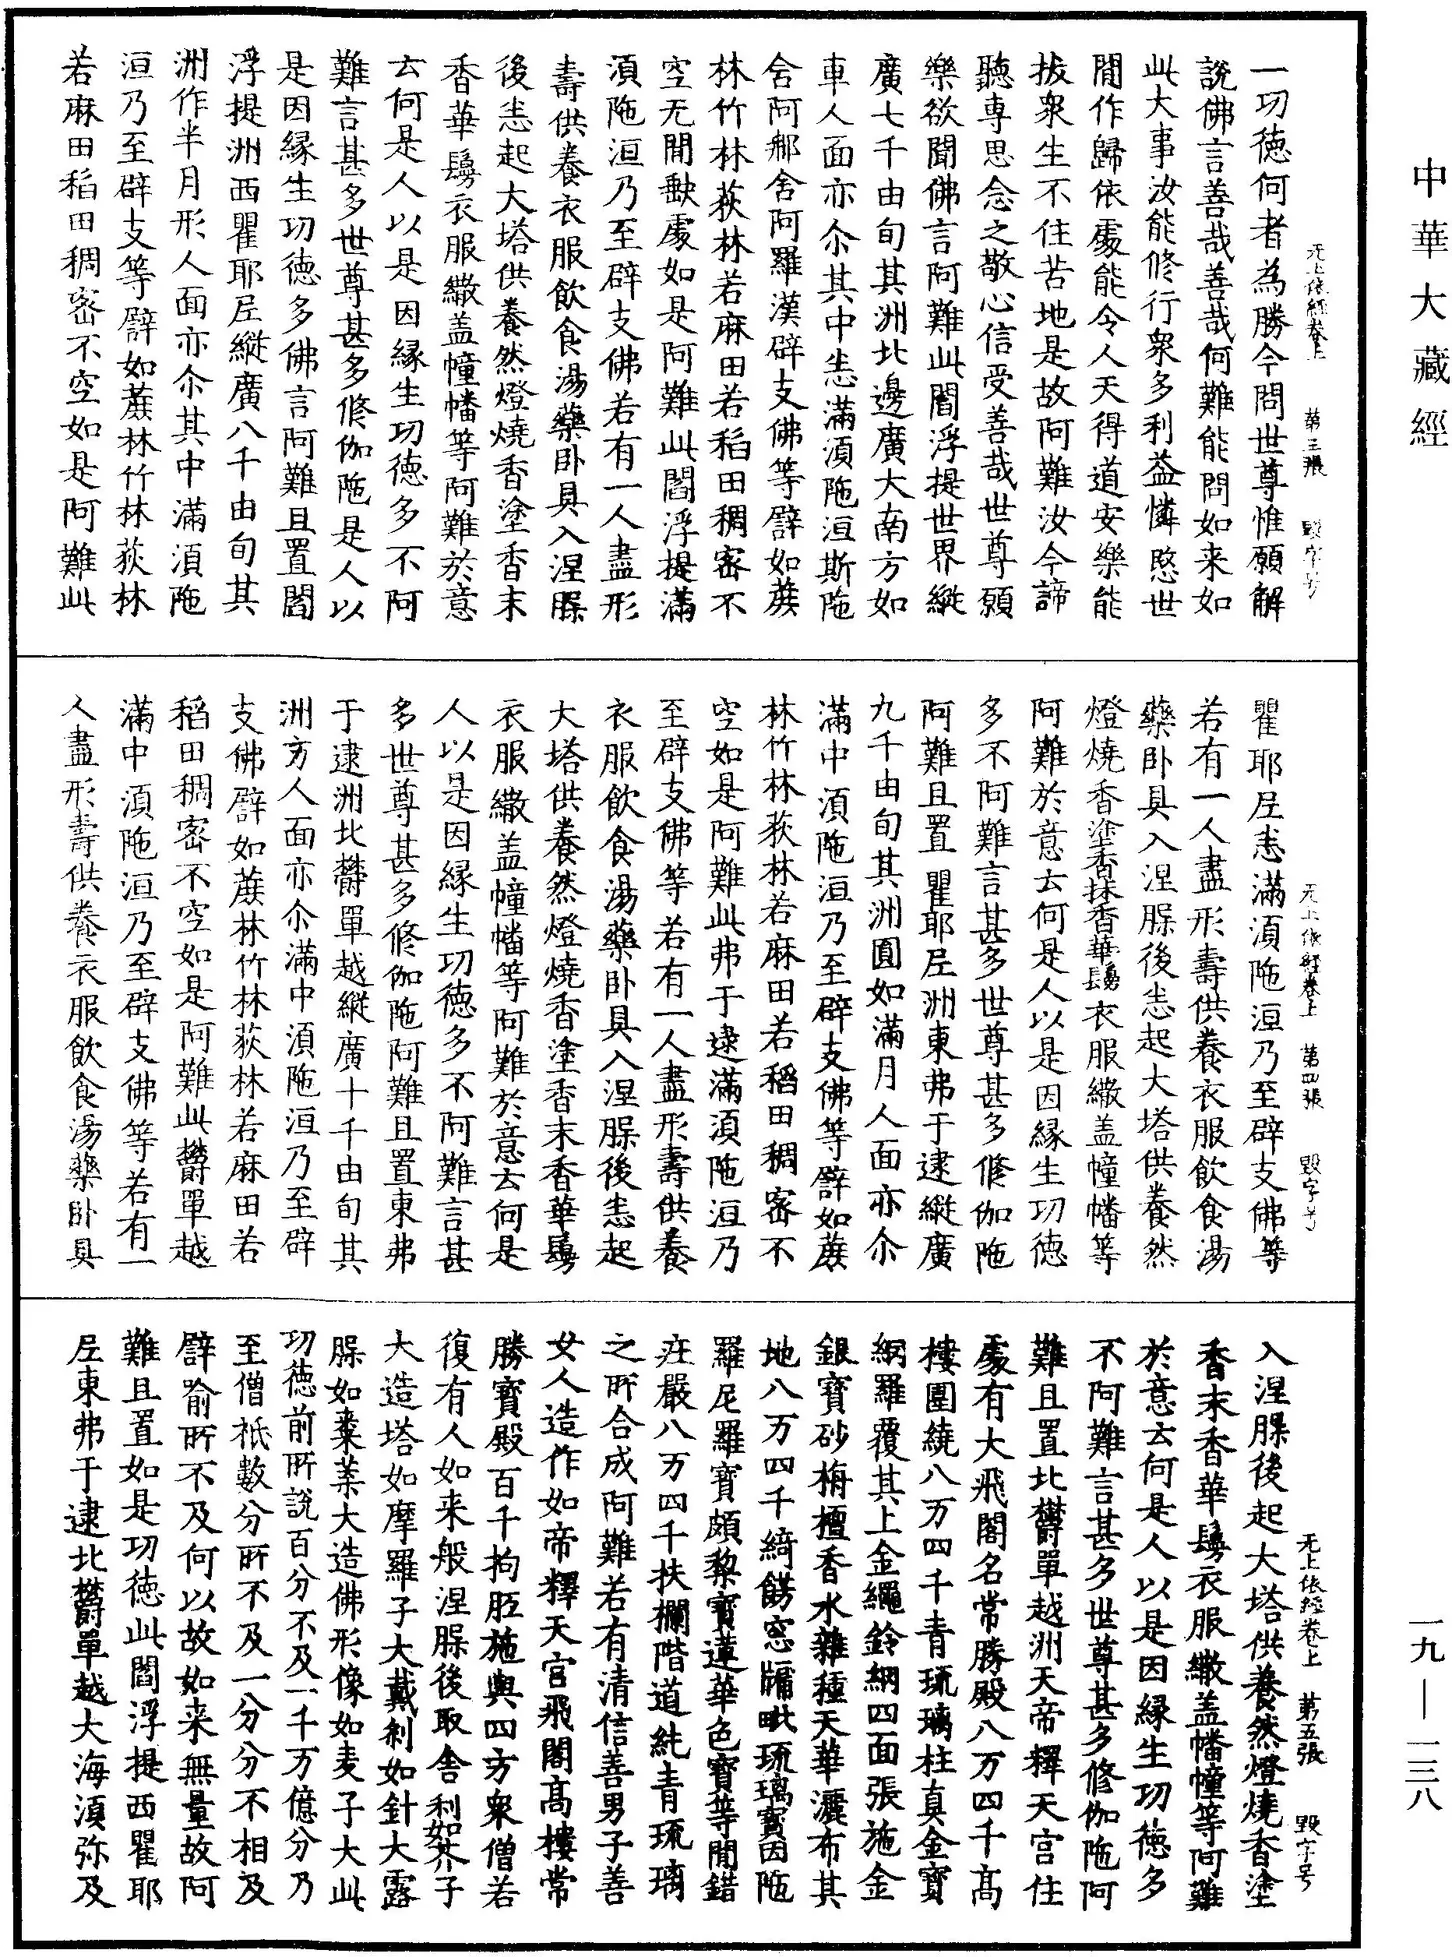 中華大藏經
一功德何者為勝今問世尊惟願解
說佛言善哉善哉何難能問如来如
此大事汝能修行衆多利益憐愍世
間作歸依處能令人天得道安樂能
拔衆生不住苦地是故阿難汝今諦
聽專思念之敬心信受善哉世尊願
樂欲聞佛言阿難此閻浮提世界縱
廣七千由旬其洲北邊廣大南方如
車人面亦尒其中悉滿湏陁洹斯陁
含阿那含阿羅漢辟支佛等譬如蔗
林竹林荻林若麻田若稻田稠密不
空无間缺處如是阿難此閻浮提滿
湏陁洹乃至辟支佛若有一人盡形
壽供養衣服飲食湯藥卧具入涅槃
後悉起大塔供養然燈燒香塗香末
香華鬘衣服繖盖幢幡等阿難於意
云何是人以是因緣生功德多不阿
難言甚多世尊甚多修伽陁是人以
是因緣生功德多佛言阿難且置閻
浮提洲西瞿耶尼縱廣八千由旬其
洲作半月形人面亦尒其中滿湏陁
洹乃至辟支等譬如蔗林竹林荻林
若麻田稻田稠密不空如是阿難此
无上依經卷上 第三張 毀字号
瞿耶尼悉滿湏陁洹乃至辟支佛等
若有一人盡形壽供養衣服飲食湯
藥卧具入涅槃後悉起大塔供養然
燈燒香塗香抹香華鬘衣服繖盖幢幡等
阿難於意云何是人以是因緣生功德
多不阿難言甚多世尊甚多修伽陁
阿難且置瞿耶尼洲東弗于逮縱廣
九千由旬其洲圓如滿月人面亦尒
滿中湏陁洹乃至辟支佛等譬如蔗
林竹林荻林若麻田若稻田稠密不
空如是阿難此弗于逮滿湏陁洹乃
至辟支佛等若有一人盡形壽供養
衣服飲食湯藥卧具入涅槃後悉起
大塔供養然燈燒香塗香末香華鬘
衣服繖盖幢幡等阿難於意云何是
人以是因緣生功德多不阿難言甚
多世尊甚多修伽陁阿難且置東弗
于逮洲北欝單越縱廣十千由旬其
洲方人面亦尒滿中湏陁洹乃至辟
支佛譬如蔗林竹林荻林若麻田若
稻田稠密不空如是阿難此欝單越
滿中湏陁洹乃至辟支佛等若有一
人盡形壽供養衣服飲食湯藥卧具
无上依經卷上 第四張 毀字号
入涅槃後起大塔供養然燈燒香塗
香末香華鬘衣服繖盖幡幢等阿難
於意云何是人以是因緣生功德多
不阿難言甚多世尊甚多修伽陁阿
難且置北欝單越洲天帝釋天宮住
處有大飛閣名常勝殿八万四千高
樓圍繞八万四千青琉璃柱真金寶
網羅覆其上金繩鈴網四面張施金
銀寶砂栴檀香水雜種天華灑布其
地八万四千綺飾窓牖毗琉璃寶因陁
羅尼羅寶頗黎寶蓮華色寶等間錯
庄嚴八万四千扶欄階道純青琉璃
之所合成阿難若有清信善男子善
女人造作如帝釋天宮飛閣高樓常
勝寶殿百千拘胝施與四方衆僧若
復有人如来般涅槃後取舍利如芥子
大造塔如摩羅子大戴刹如針大露
槃如棗葉大造佛形像如麦子大此
功德前所說百分不及一千万億分乃
至僧祇數分所不及一分分不相及
譬喻所不及何以故如来無量故阿
難且置如是功德此閻浮提西瞿耶
尼東弗于逮北欝單越大海湏弥及
无上依經卷上 第五張 毀字号
一九—一三八